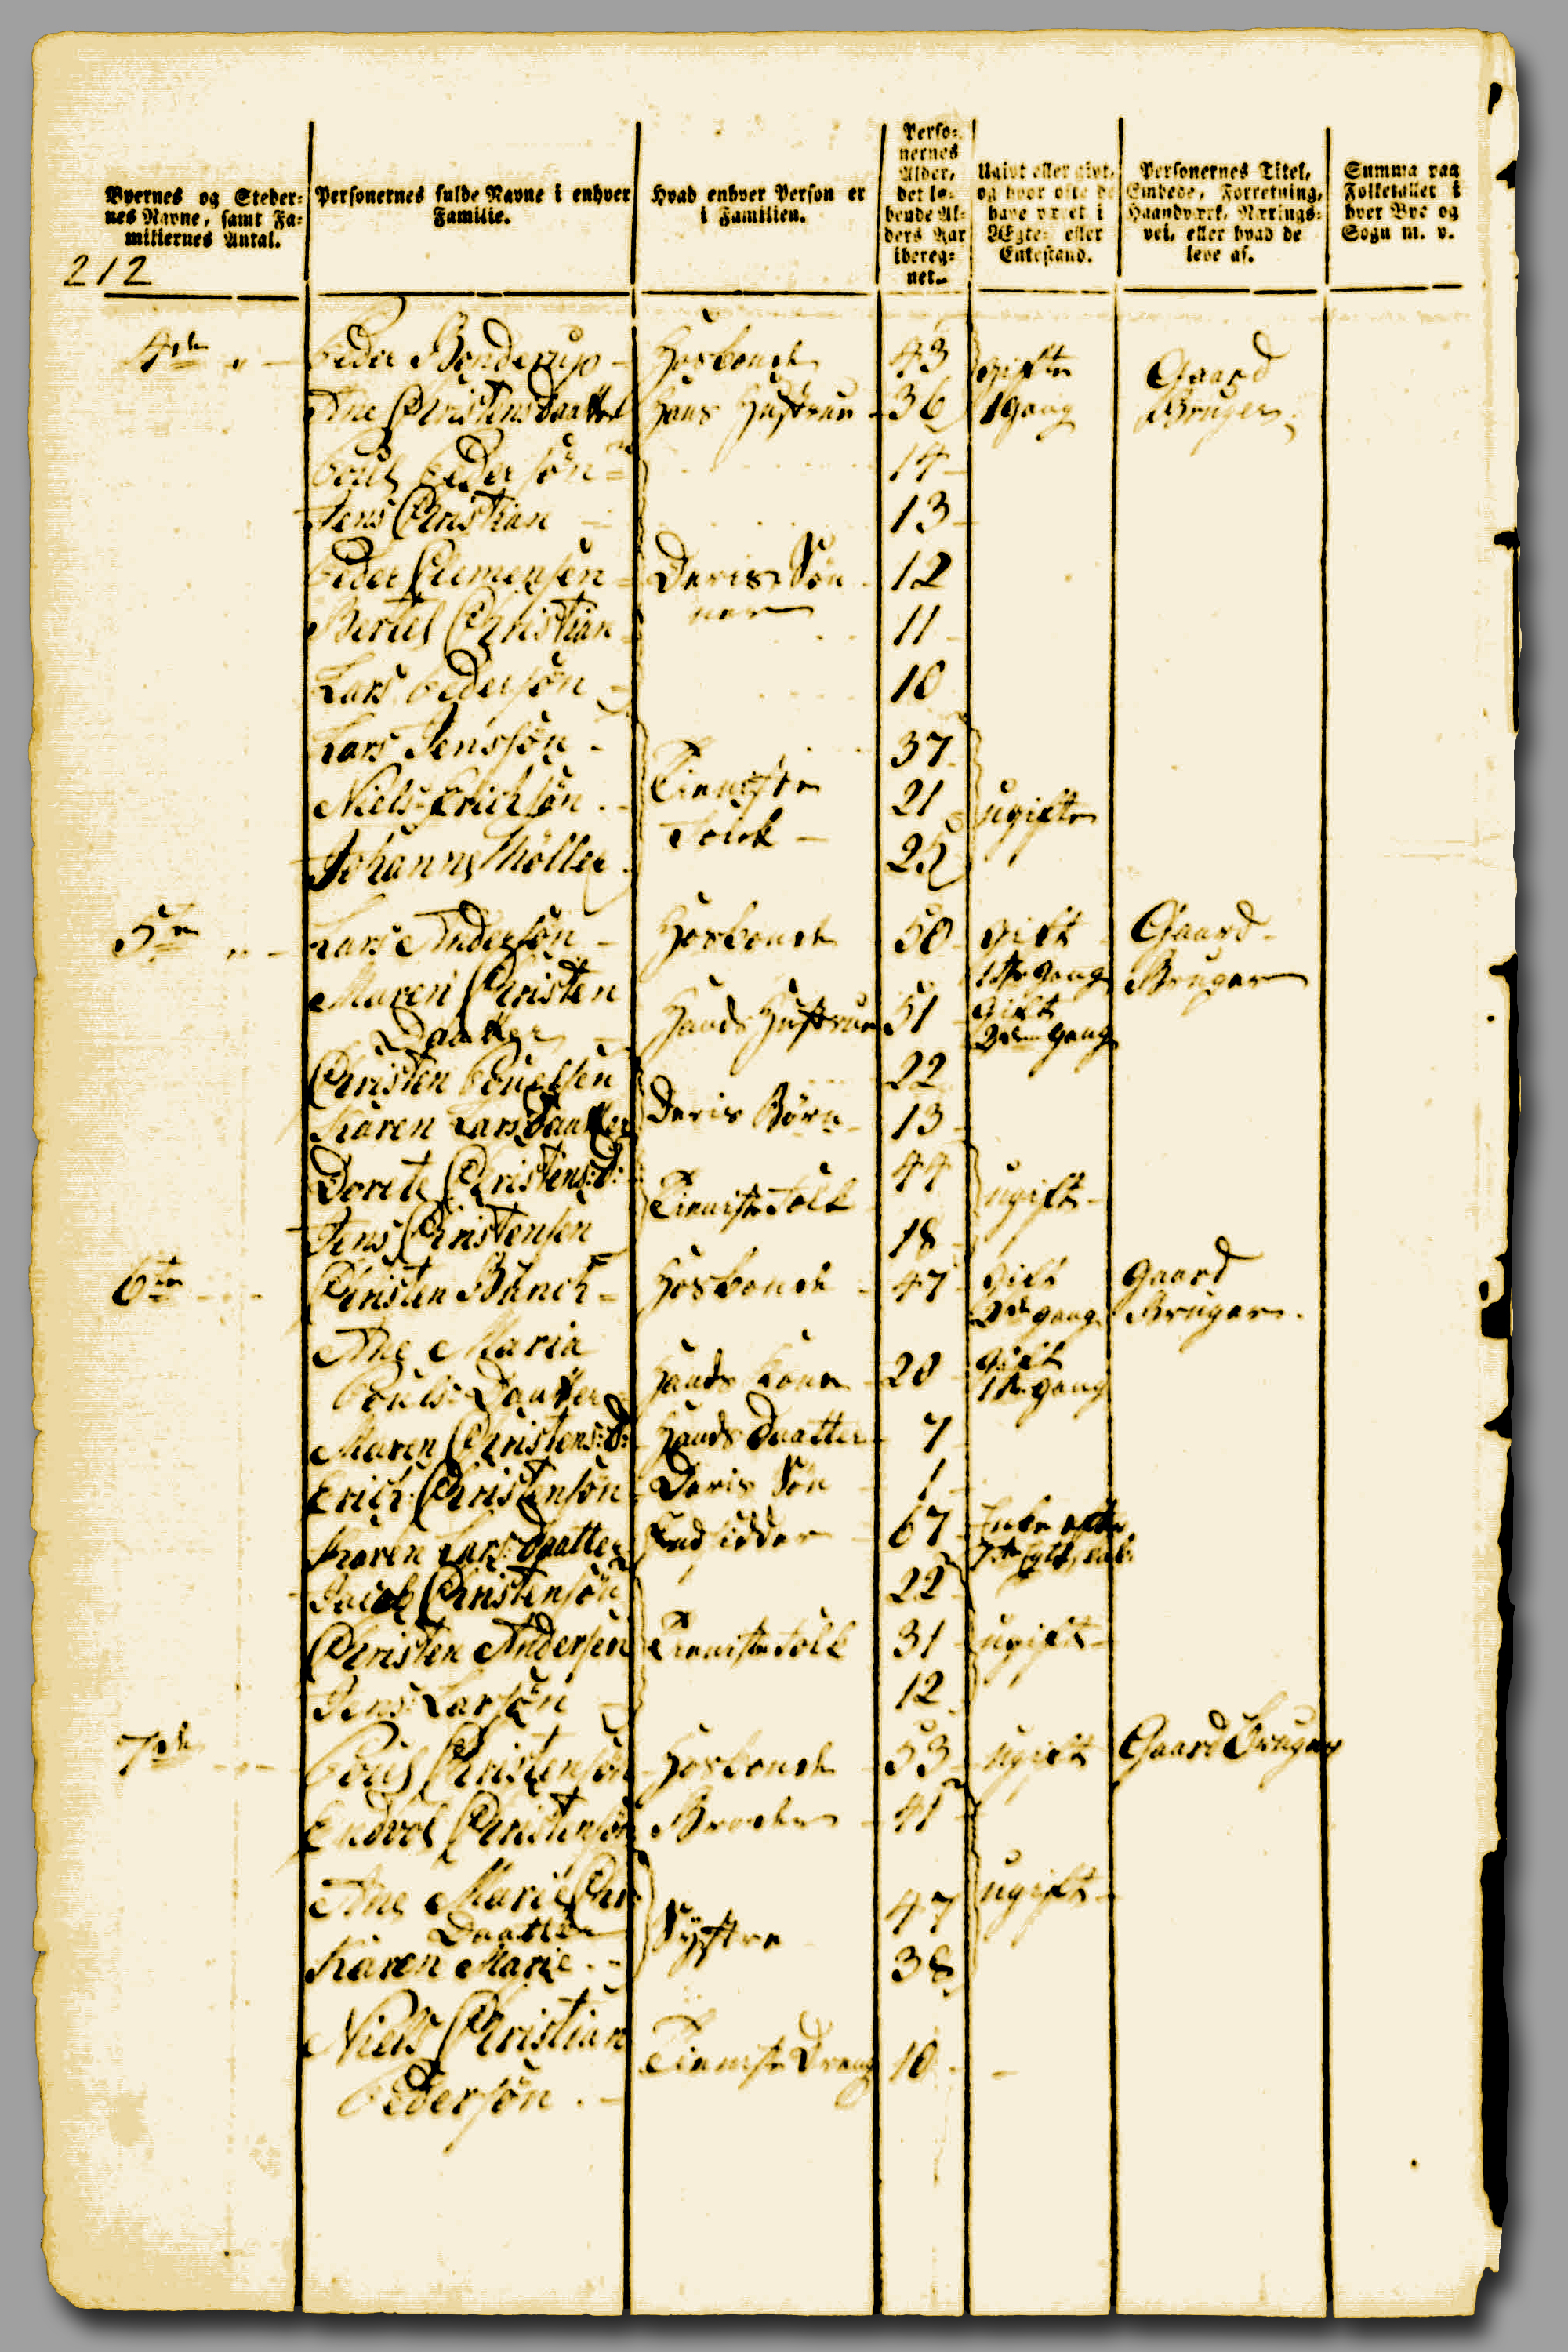 Byernes og Steder-
nes Navne, samt Fa-
miliernes Antal.
Personernes fulde Navne i enhver
Familie.
Hvad enhver Person er
i Familien.
Perso-
nernes
Alder,
det lø-
bende Al-
ders Aar
ibereg-
net.
Ugivt eller givt,
og hvor ofte de
have været i
Ægte- eller
Enkestand.
Personernes Titel,
Embede, Forretning,
Haandværk, Nærings-
vei, eller hvad de
leve af.
Summa paa
Folketallet i
hver Bye og
Sogn m. v.
212
4de Peder Bonderup Hosbonde 43 gifte Gaard
Ane Christensdaatter Hans Hustrue 36 1 Gang Bruger
Pouls Peder søn 14
Jens Christian 13
Peder Clemensen Deris Søn 12
Bertel Christian ner 11
Lars Pedersøn 10
Lars Jenssøn 37
Niels Erichsøn Tieneste 21 ugifte
Johannes Møller Folck 25
5te Lars Andersøn Hosbonde 50 gift Gaard
1ste Gang Bruger
Maren Christen
Daatter Hands Hustrue 51 Gift
2den Gang
Christen Pouelsen 22
Karen Larsdaatter Deris Børn 13
Dorete Christens:D: Tieniste Folk 44 ugift
Jens Christensen 18
6te Christen Bünch Hosbonde 47 Gift Gaard
2de Gang Bruger
Ane Maria
Pouls Daatter Hands Kone 20 gift
1ste gang
Maren Christens:D: Hands Daatter 7
Erich Christensøn Deris Søn 1
Karen Lars:daatter Indsidder 67 Enke efter
Jacob Christensøn 22
Christen Andersen Tieniste Folk 31 ugift
Jens Larsøn 12
7de Pouls Christensøn Hosbonde 53 ugift Gaard Bruger
Endvol Christensøn Broder 41
Ane Marie Chr:
Daatter Systre 47 ugift
Karen Marie 38
Niels Christian
Pedersøn Tieniste Dreng 10